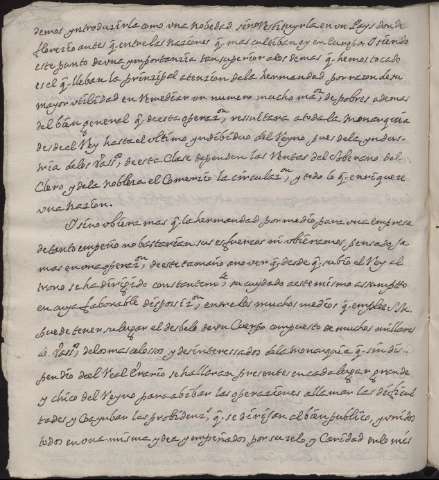 demos yntroducirla como una nobedad sino Restituyrla en un Pays donde
florecio antes q. entre las Naciones q. mas cultiban oy en Europa. I siendo
este punto de una ymportancia tan superior a los demas q. hemos tocado
es el q. lleban la principal atencion de la hermandad por razon de su
mayor utilidad en Remediar un numero mucho mar. de pobres ademas
del bien general q. de esta operazn. resultara a toda la Monarquia
desde el Rey hasta el ultimo yndibiduo del Reyno, pues de la yndus-
tria de los Vasss. de esta Clase dependen las Rentas del Soberano del
Clero, y de la nobleza el Comercio la circulazn. y todo lo q. enriqueze
una nacion.
I si no ubiera mas q. la hermandad por medio para una empresa
de tanto empeño no bastarian sus esfuerzos ni ubieramos pensado ja-
mas en una operazn. de este tamaño a no ver q. desde q. subio el Rey al
trono se ha dirigido constantemte. su cuydado a este mismo assumpto
en cuya faborable disposizn. entre los muchos medios q. emplee S.M.
puede tener su lugar el desbelo de un Cuerpo compuesto de muchos millares
de Vasss. de los mas celosos y desinteressados de la Monarquia q. sin dis-
pendio de el Real Erario se hallaran presentes en cada lugar grande
y chico del Reyno para abibar las operaciones allanar las dificul-
tades y Coayubar las probidenzs. q. se dirijan al bien publico, y unidos
todos en una misma ydea y empeñados por su zelo y Caridad en lo mis